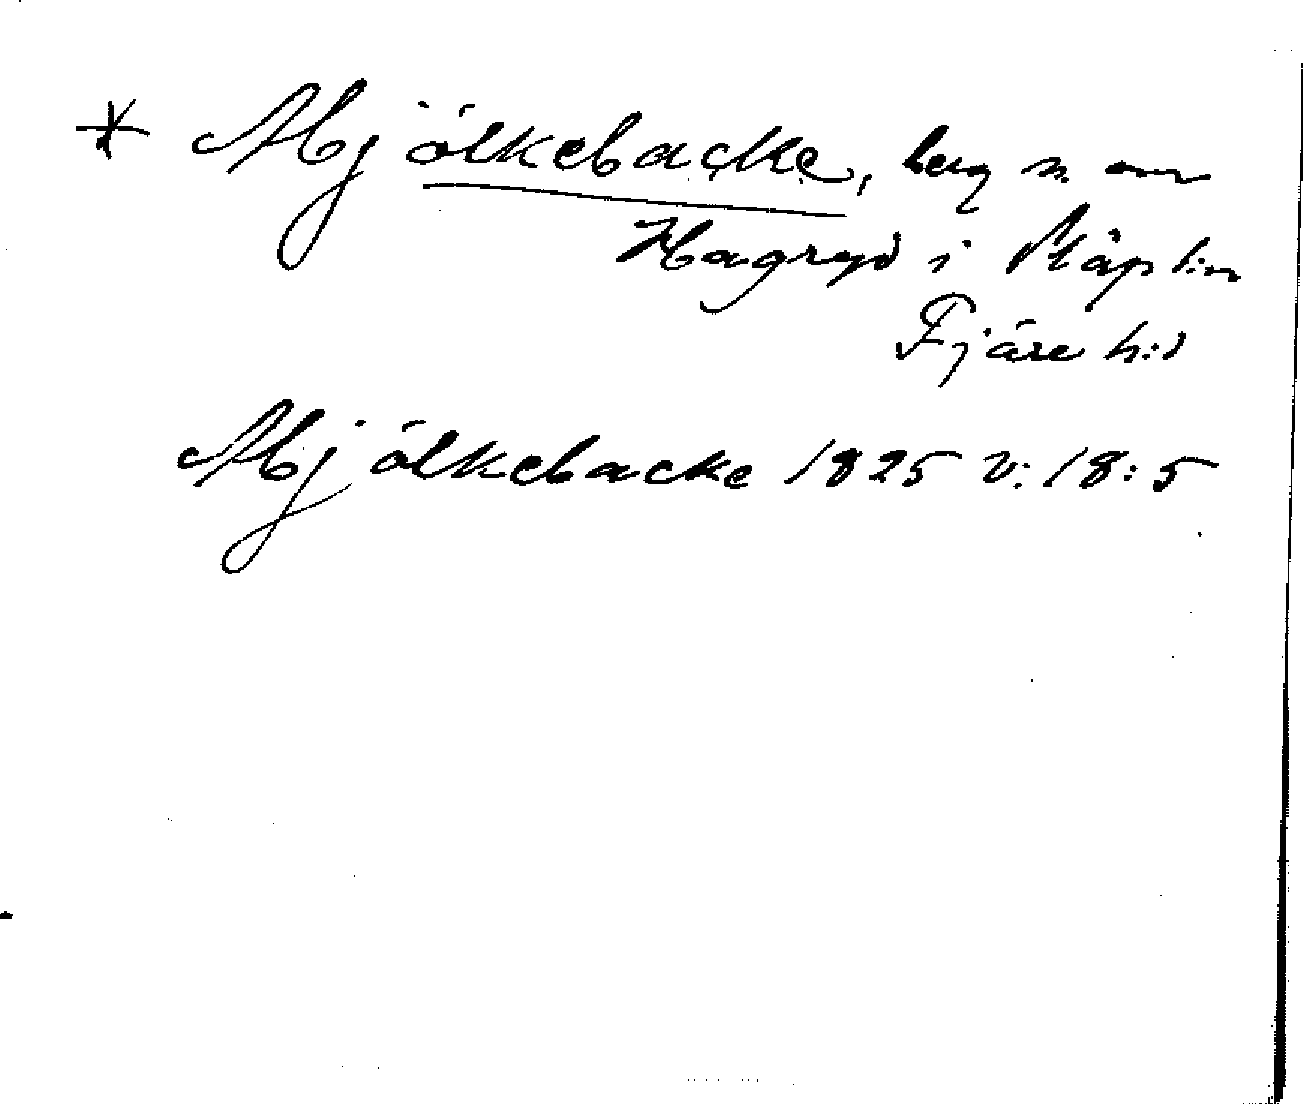 * Mjölkebacke, berg n. om
Hagryd i Släp s:n
Fjäre h:d
Mjölkebacke 1825 v: 18:5